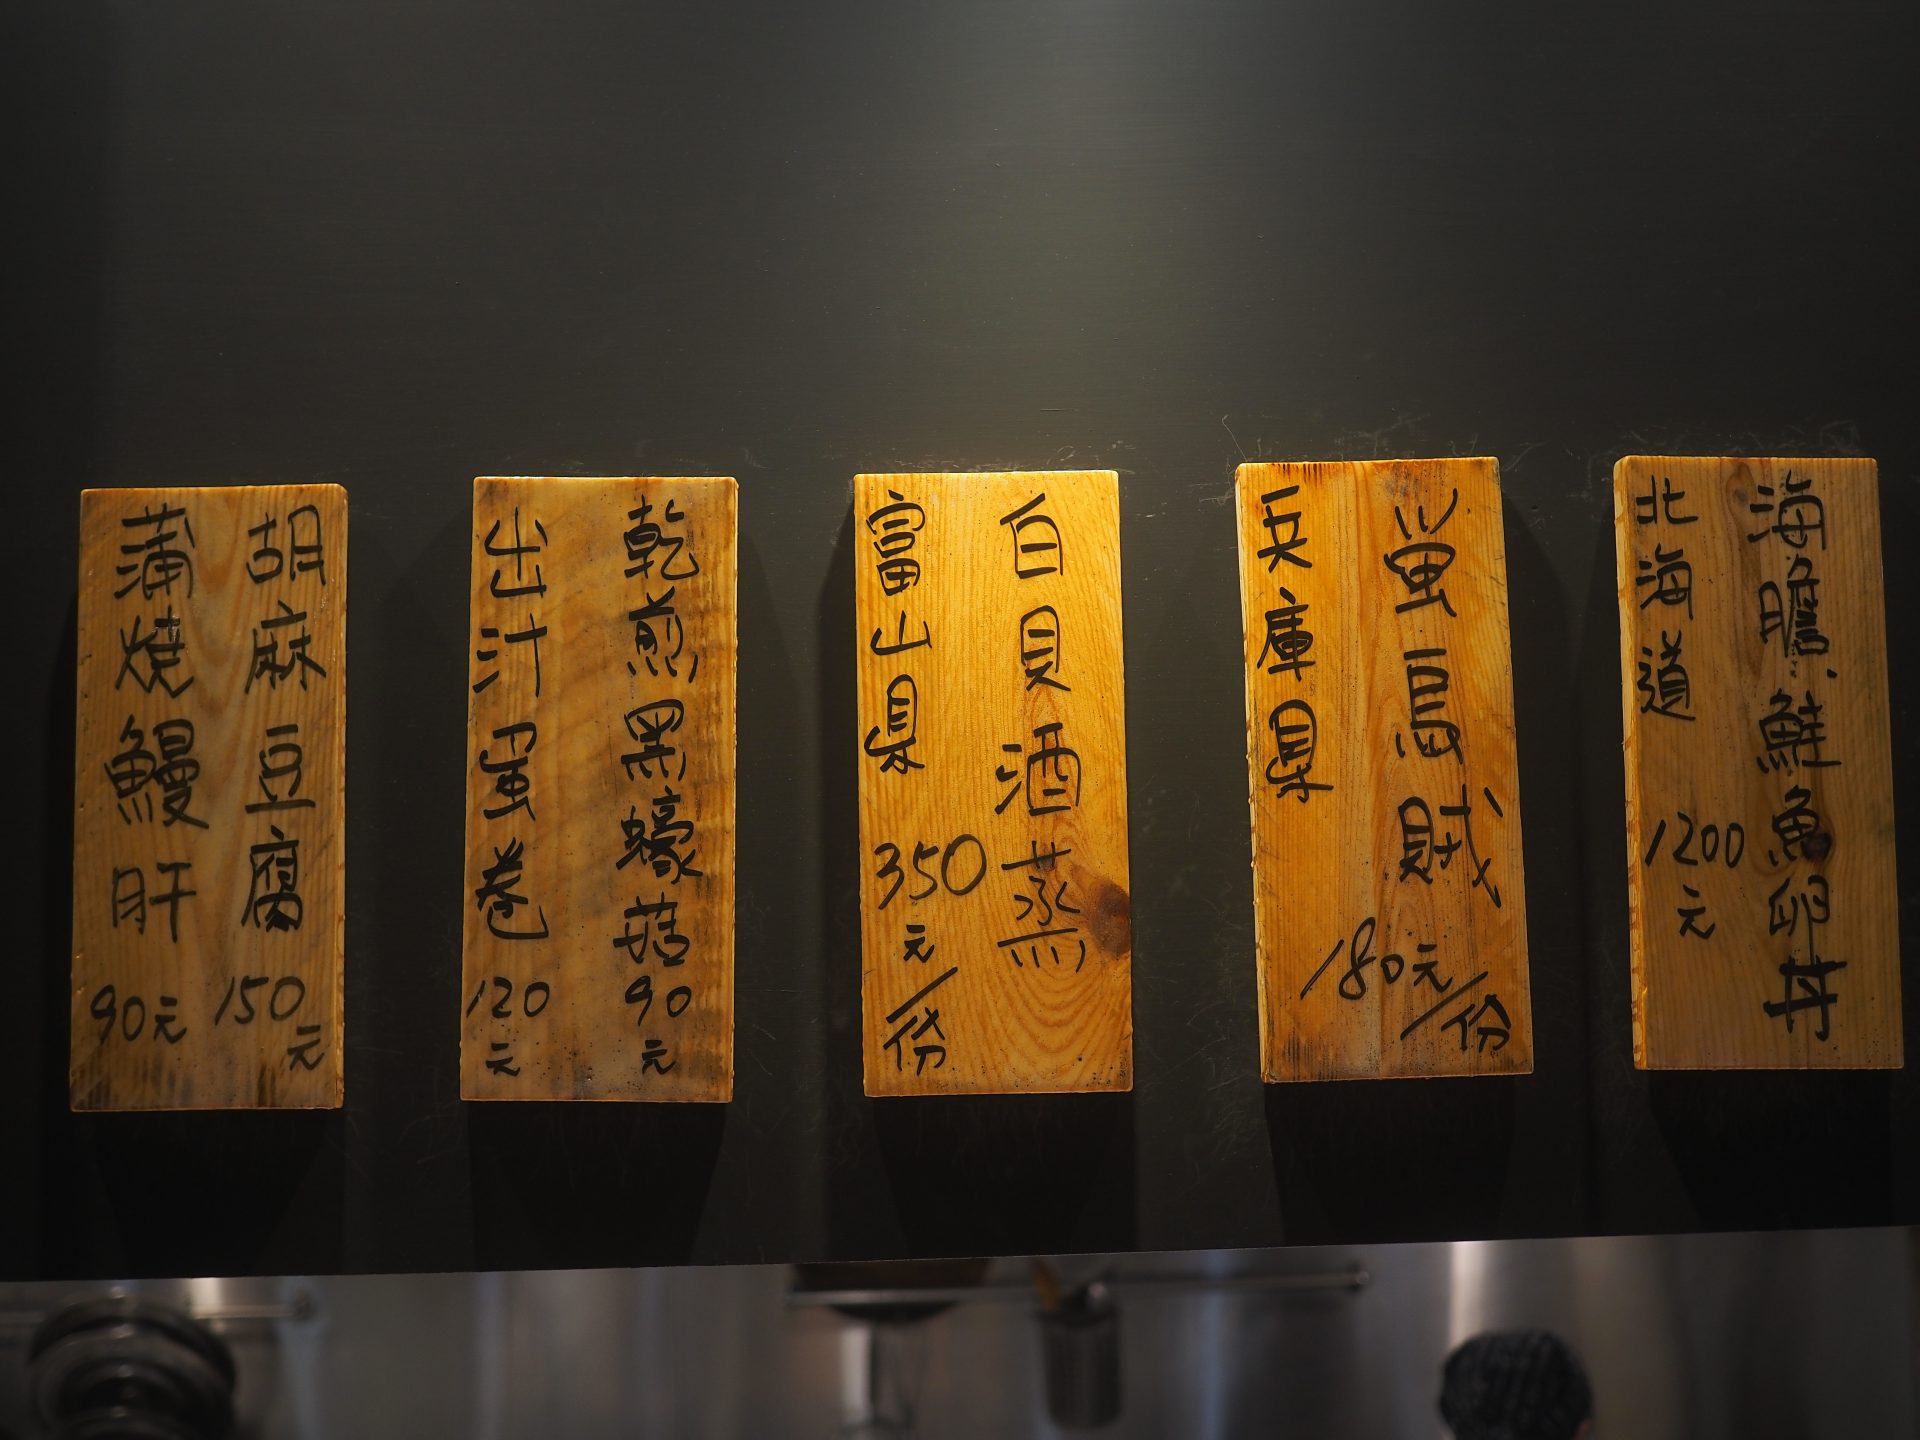 海膽鮭魚卵丼
北海道 1200元
蛍烏賊 180元/份
兵庫県
白貝酒蒸
富山県 350元/份
乾煎黑蠔菇 90元
出汁蛋卷 120元
胡麻豆腐 150元
蒲燒鰻肝 90元